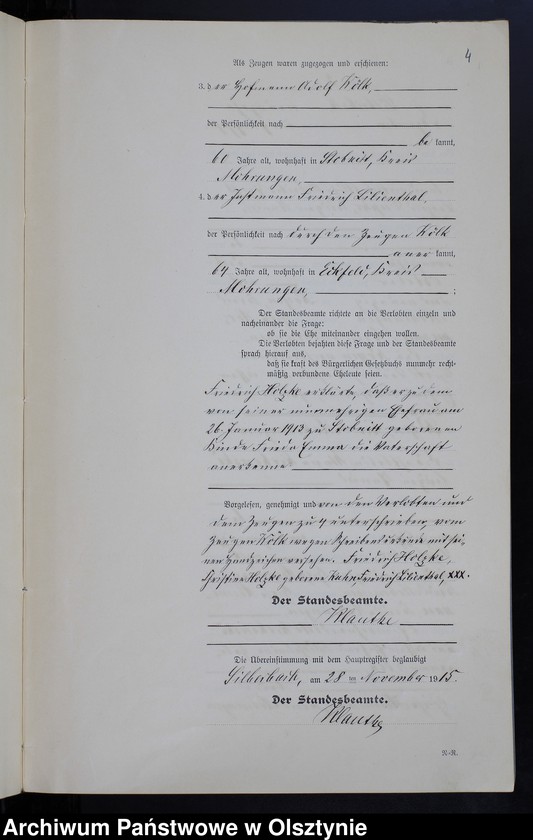 4
Als Zeugen waren zugezogen und erschienen:
3. der Hofmann Adolf Kölk,
der Persönlichkeit nach
be kannt,
60 Jahre alt, wohnhaft in Stobnitt, Kreis
Mohrungen,
4. der Instmann Friedrich Lilienthal
der Persönlichkeit nach durch den Zeugen Kölk
aner kannt,
64 Jahre alt, wohnhaft in Eckfeld, Kreis
Mohrungen, ;
Der Standesbeamte richtete an die Verlobten einzeln und
nacheinander die Frage:
ob sie die Ehe miteinander eingehen wollen.
Die Verlobten bejahten diese Frage und der Standesbeamte
sprach hierauf aus,
daß sie kraft des Bürgerlichen Gesetzbuchs nunmehr recht-
mäßig verbundene Eheleute seien.
Friedrich Holzke erklärte, daß er zu dem
von seiner nunmehrigen Ehefrau am
26. Januar 1913 zu Stobnitt geborenen
Kinde Frieda Emma die Vaterschaft
anerkenne
Vorgelesen, genehmigt und von den Verlobten und
dem Zeugen zu 4 unterschrieben, vom
Zeugen Kölk wegen Schreibensunkunde mit sei-
nen Handzeichen versehen. Friedrich Holzke,
Christine Holzke geborene Kuhn Friedrich Lilienthal, xxx.
Der Standesbeamte.
Klautke
Die Übereinstimmung mit dem Hauptregister beglaubigt
Silberbach, am 28 ten November 1915.
Der Standesbeamte.
Klautke
N.-R.
Archiwum Państwowe w Olsztynie